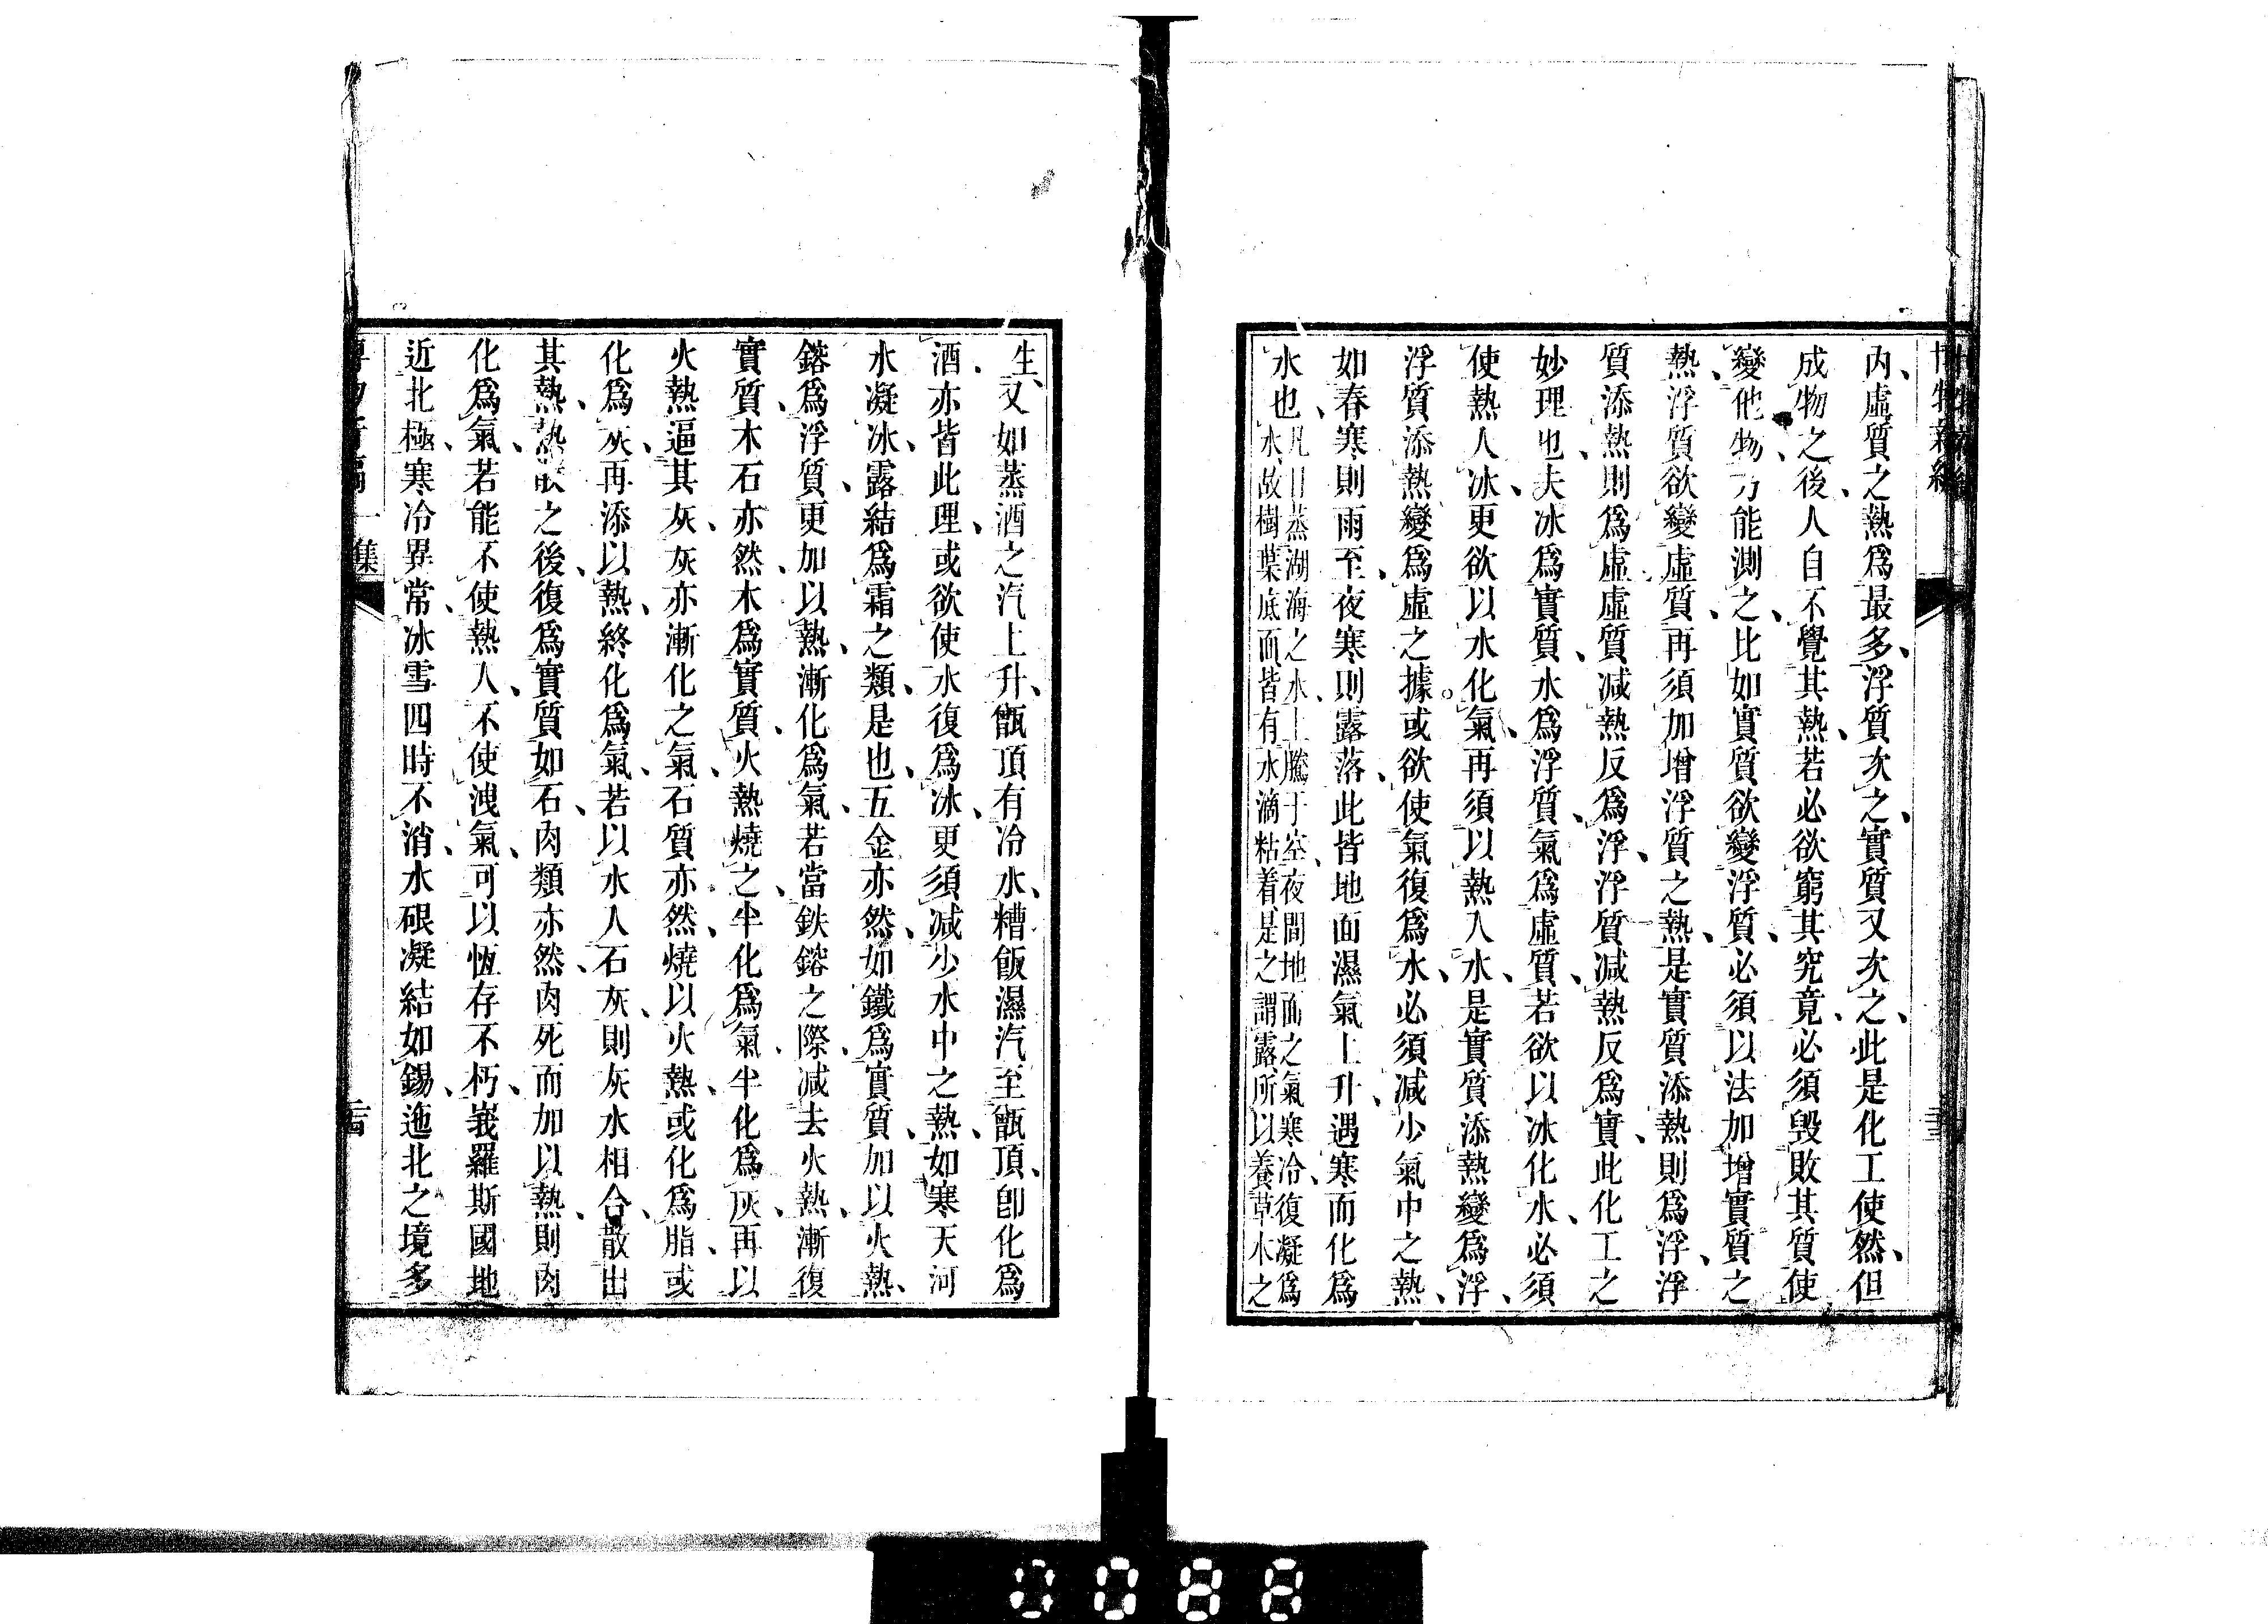 內、虛質之熱爲最多、浮質次之、實質又次之、此是化工使然、但
成物之後、人自不覺其熱、若必欲窮其究竟、必須毀敗其質使
變他物、方能測之、比如實質欲變浮質、必須以法加增實質之
熱、浮質欲變虛質、再須加增浮質之熱、是實質添熱則爲浮、浮
質添熱則爲虛、虛質減熱反爲浮、浮質減熱反爲實、此化工之
妙理也、夫冰爲實質、水爲浮質、氣爲虛質、若欲以冰化水、必須
使熱人冰、更欲以水化氣、再須以熱入水、是實質添熱變爲浮、
浮質添熱變爲虛之據。或欲使氣復爲水、必須減少氣中之熱、
如春寒則雨至、夜寒則露落、此皆地面濕氣上升、遇寒而化爲
水也、凡日蒸湖海之水、上騰于空、夜間地面之氣寒冷、復凝爲
水、故樹葉底面、皆有水滴粘着、是之謂露、所以養草木之
生、又如蒸酒之汽上升、甑頂有冷水、糟飯濕汽至甑頂、卽化爲
酒、亦皆此理、或欲使水復爲冰、更須減少水中之熱、如寒天河
水凝冰、露結爲霜之類、是也、五金亦然、如鐵爲實質、加以火熱、
鎔爲浮質、更加以熱、漸化爲氣、若當鉄鎔之際、減去火熱、漸復
實質、木石亦然、木爲實質、火熱燒之、半化爲氣、半化爲灰、再以
火熱逼其灰、灰亦漸化之氣、石質亦然、燒以火熱、或化爲脂、或
化爲灰、再添以熱、終化爲氣、若以水人石灰、則灰水相合、散出
其熱、熱散之後、復爲實質如石、肉類亦然、肉死而加以熱、則肉
化爲氣、若能不使熱人、不使洩氣、可以恆存不朽、峩羅斯國地
近北極、寒冷異常、冰雪四時不消、水硍凝結如錫、迤北之境多
博物新編 一集